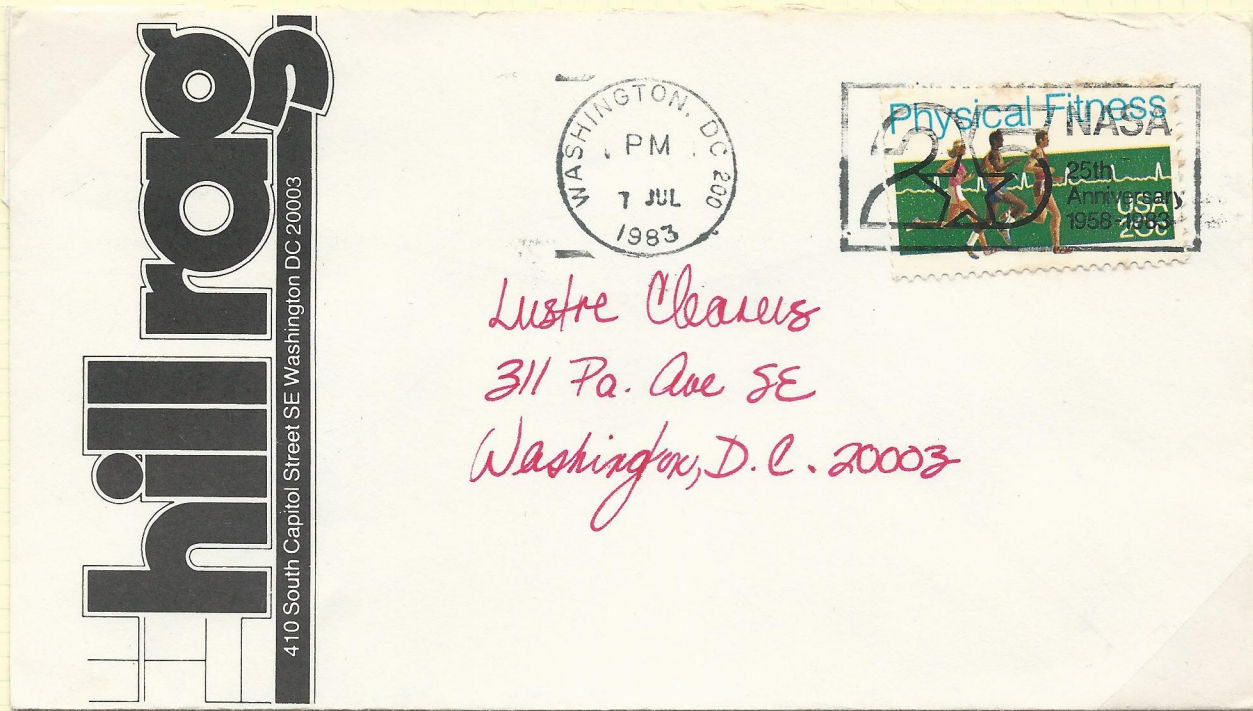 hill rag
410 South Capitol Street SE Washington DC 20003
WASHINGTON, DC 200
PM
7 JUL
1983
Physical Fitness
USA
20c
25
NASA
25th
Anniversary
1958-1983
Lustre Cleaners
311 Pa. Ave SE
Washington, D.C. 20003